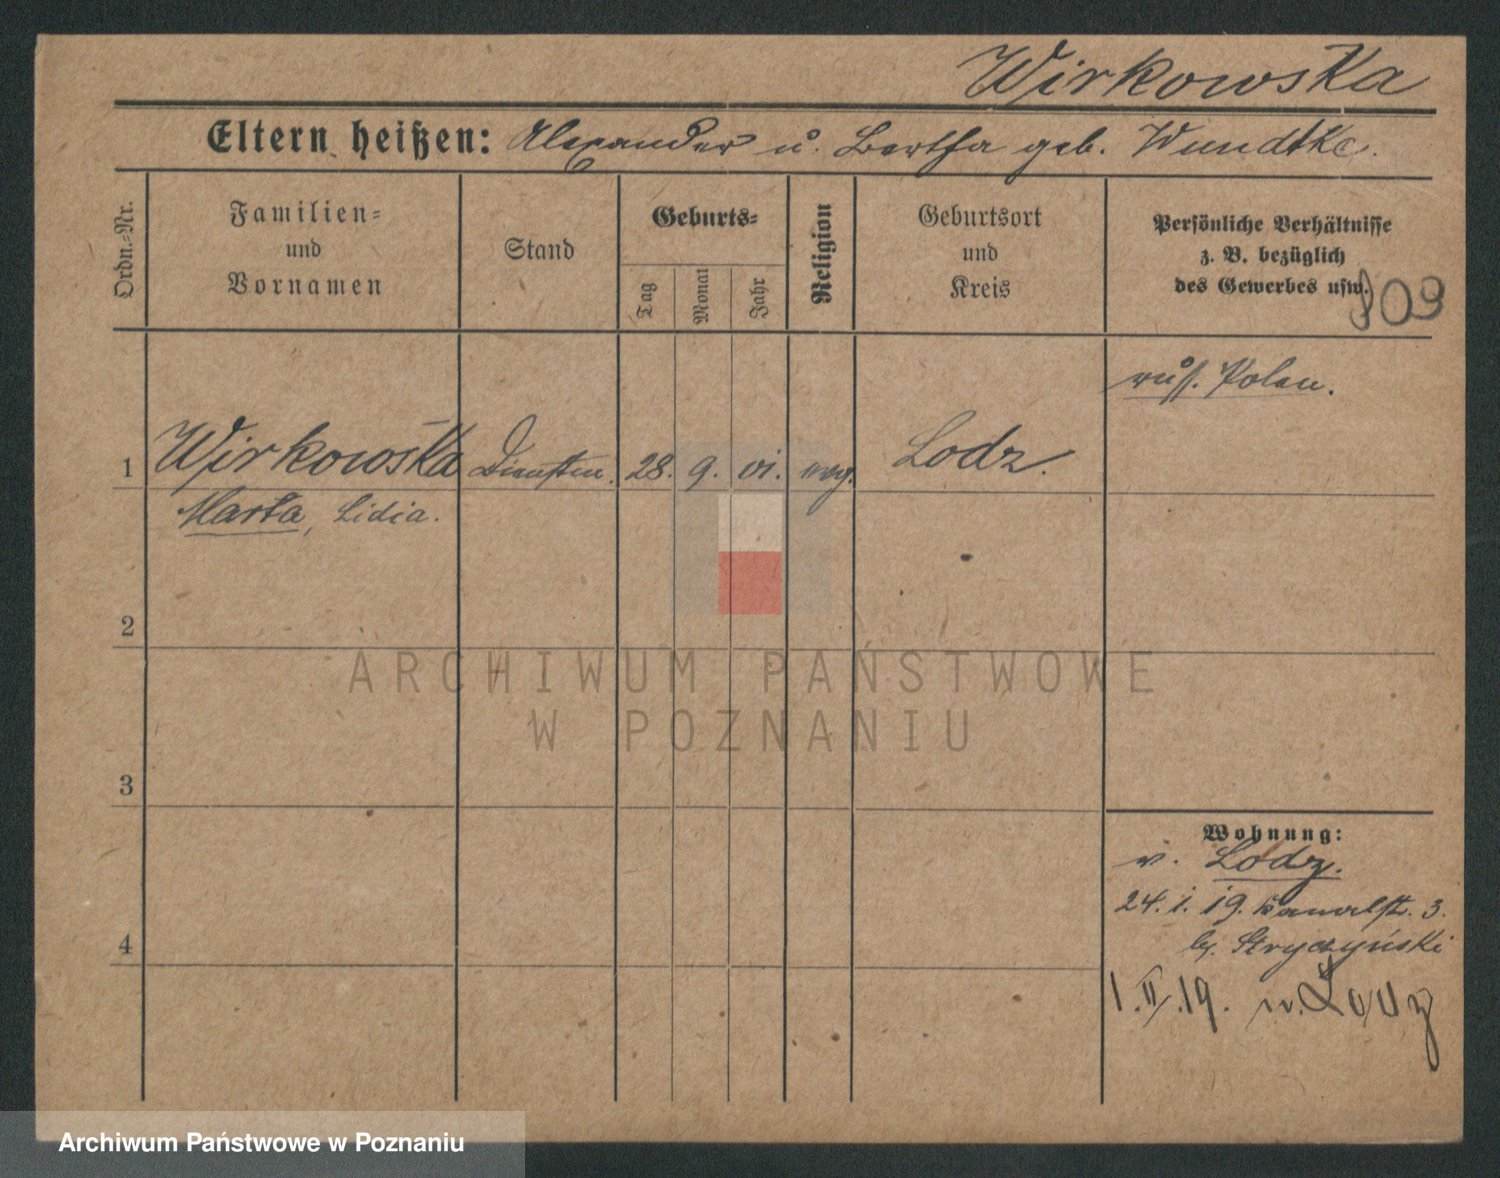 Wirkowska
Eltern heißen: Alexander u. Bertha geb. Wundtke.
Ordn.-Nr.
Familien=
und
Vornamen
Stand
Geburts=
Tag
Monat
Jahr
Religion
Geburtsort
und
Kreis
Persönliche Verhältnisse
z. B. bezüglich
des Gewerbes usw.
809
russ. Polen.
1 Wirkowska 28. 9. 01. evg. Lodz.
Marta, Lidia.
2
3
4
Wohnung:
v. Lodz.
24. 1. 19. Kanalstr. 3.
b. Stryczyński
1. II. 19. n. Lodz
ARCHIWUM PAŃSTWOWE
W POZNANIU
Archiwum Państwowe w Poznaniu